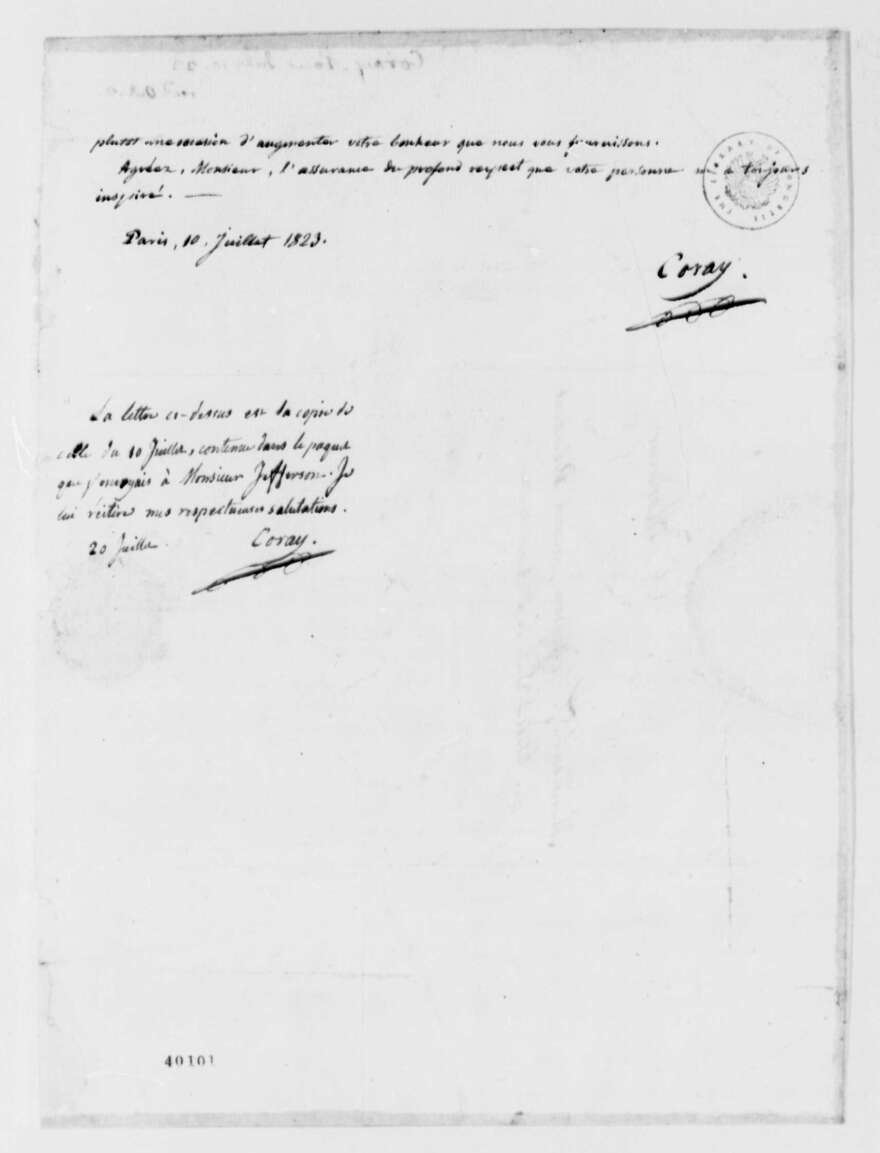 plutot une occasion d'augmenter votre bonheur que nous vous fournissons.
Agréez, Monsieur, l'assurance du profond respect que votre personne m'a toujours
inspiré. —
Paris, 10, Juillet 1823.
Coray.
La lettre ci-dessus est la copie de
celle du 10 Juillet, contenue dans le paquet
que j'envoyais à Monsieur Jefferson. Je
lui réitère mes respectueuses salutations.
20 Juillet.
Coray.
40101